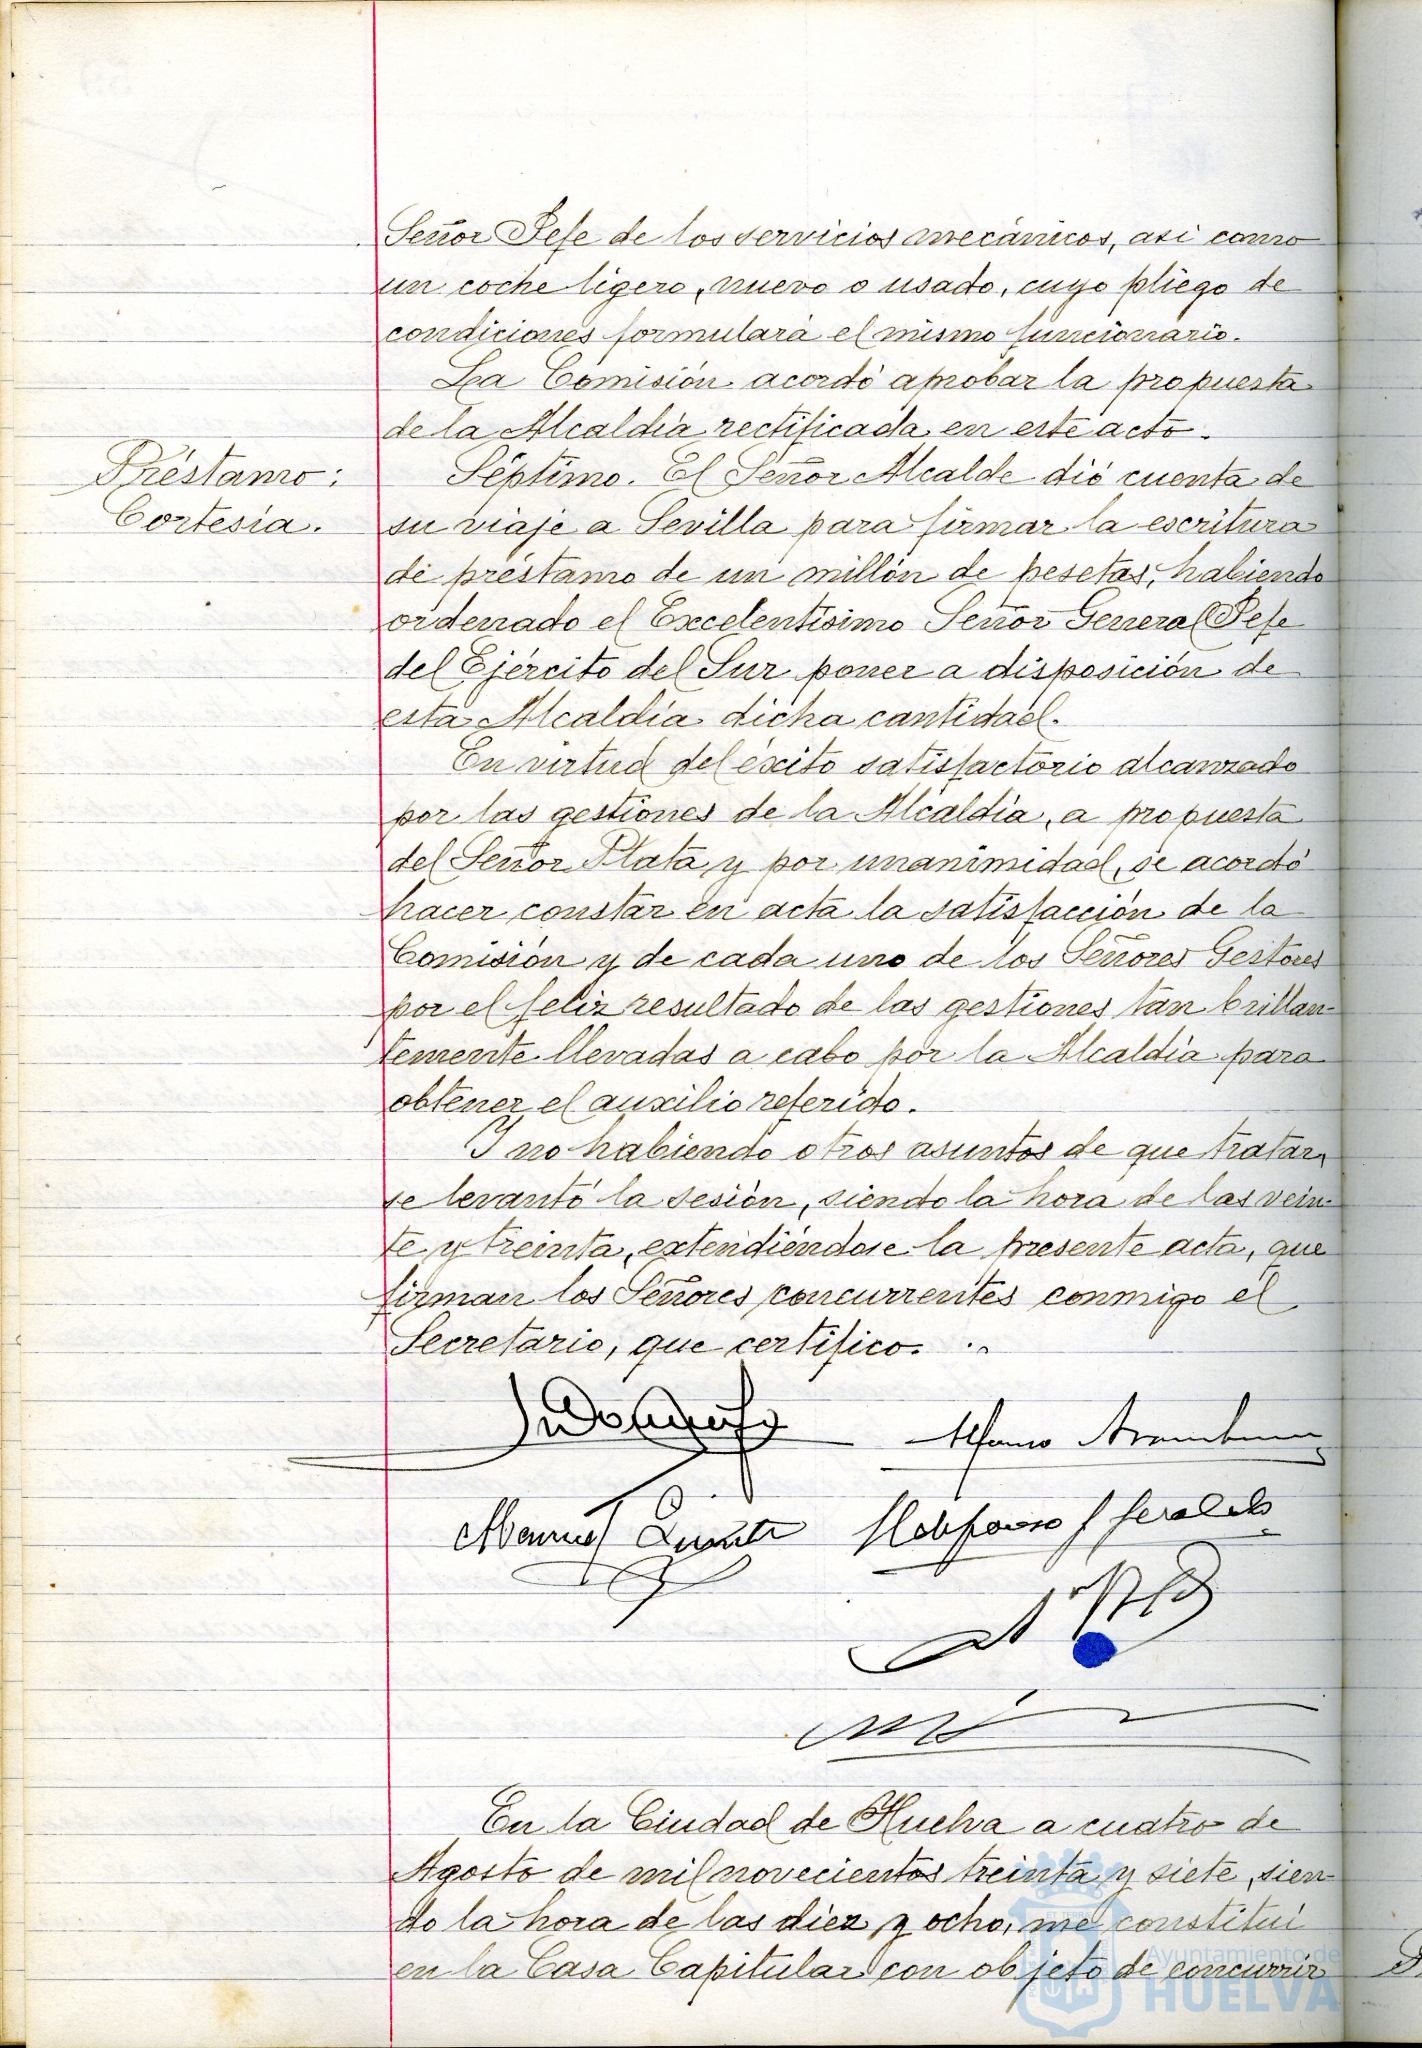 Señor Jefe de los servicios mecánicos, asi como
un coche ligero, nuevo o usado, cuyo pliego de
condiciones formulará el mismo funcionario.
La Comisión acordó aprobar la propuesta
de la Alcaldía rectificada en este acto.
Préstamo:
Cortesía.
Séptimo. El Señor Alcalde dió cuenta de
su viaje a Sevilla para firmar la escritura
de préstamo de un millón de pesetas, habiendo
ordenado el Excelentísimo Señor General Jefe
del Ejército del Sur poner a disposición de
esta Alcaldía dicha cantidad.
En virtud del éxito satisfactorio alcanzado
por las gestiones de la Alcaldía, a propuesta
del Señor Plata y por unanimidad, se acordó
hacer constar en acta la satisfacción de la
Comisión y de cada uno de los Señores Gestores
por el feliz resultado de las gestiones tan brillan-
temente llevadas a cabo por la Alcaldía para
obtener el auxilio referido.
Y no habiendo otros asuntos de que tratar,
se levantó la sesión, siendo la hora de las vein-
te y treinta, extendiéndose la presente acta, que
firman los Señores concurrentes conmigo el
Secretario, que certifico.
Alfonso Aramburu
Manuel
En la Ciudad de Huelva a cuatro de
Agosto de mil novecientos treinta y siete, sien-
do la hora de las diez y ocho, me constituí
en la Casa Capitular con objeto de concurrir
Ayuntamiento de
HUELVA